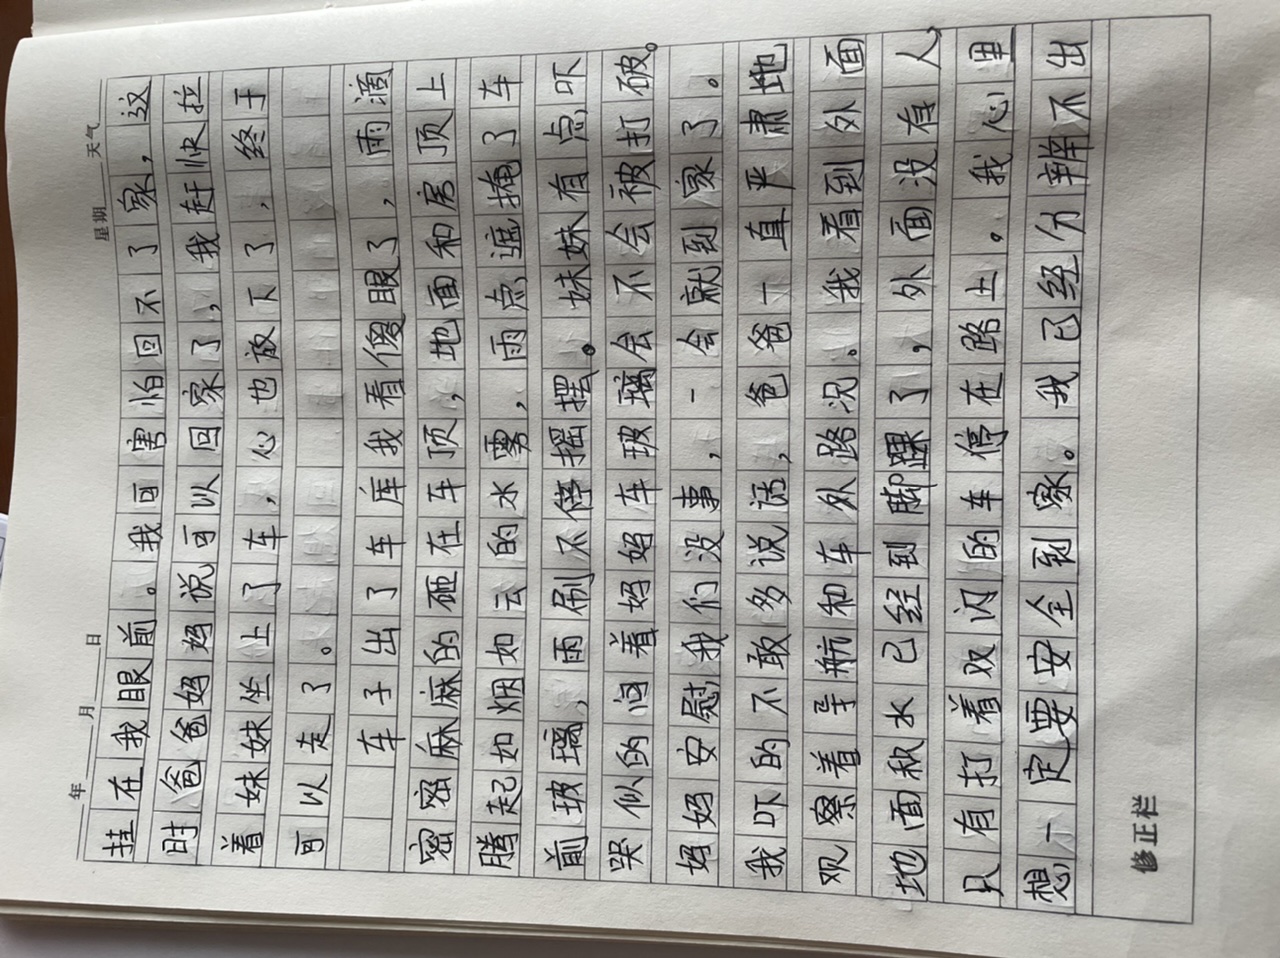 年 月 日 星期 天气
挂在我眼前。我可害怕回不了家，这
时爸爸妈妈说可以回家了，我赶快拉
着妹妹坐上了车，心也放下了，终于
可以走了。
车子出了车库我看傻眼了，雨滴
密密麻麻的砸在车顶，地面和房顶上
腾起如烟如云的水雾，雨点遮掩了车
前玻璃，雨刷不停摇摆。妹妹有点吓
哭似的问着妈妈车玻璃会不会被打破。
妈妈安慰我们没事，一会就到家了。
我吓的不敢多说话，爸爸一直严肃地
观察着导航和车外路况。我看到外面
地面积水已经到脚踝了，外面没有人，
只有打着双闪的车停在路上。我心里
想一定要安全到家。我已经分辨不出
修正栏